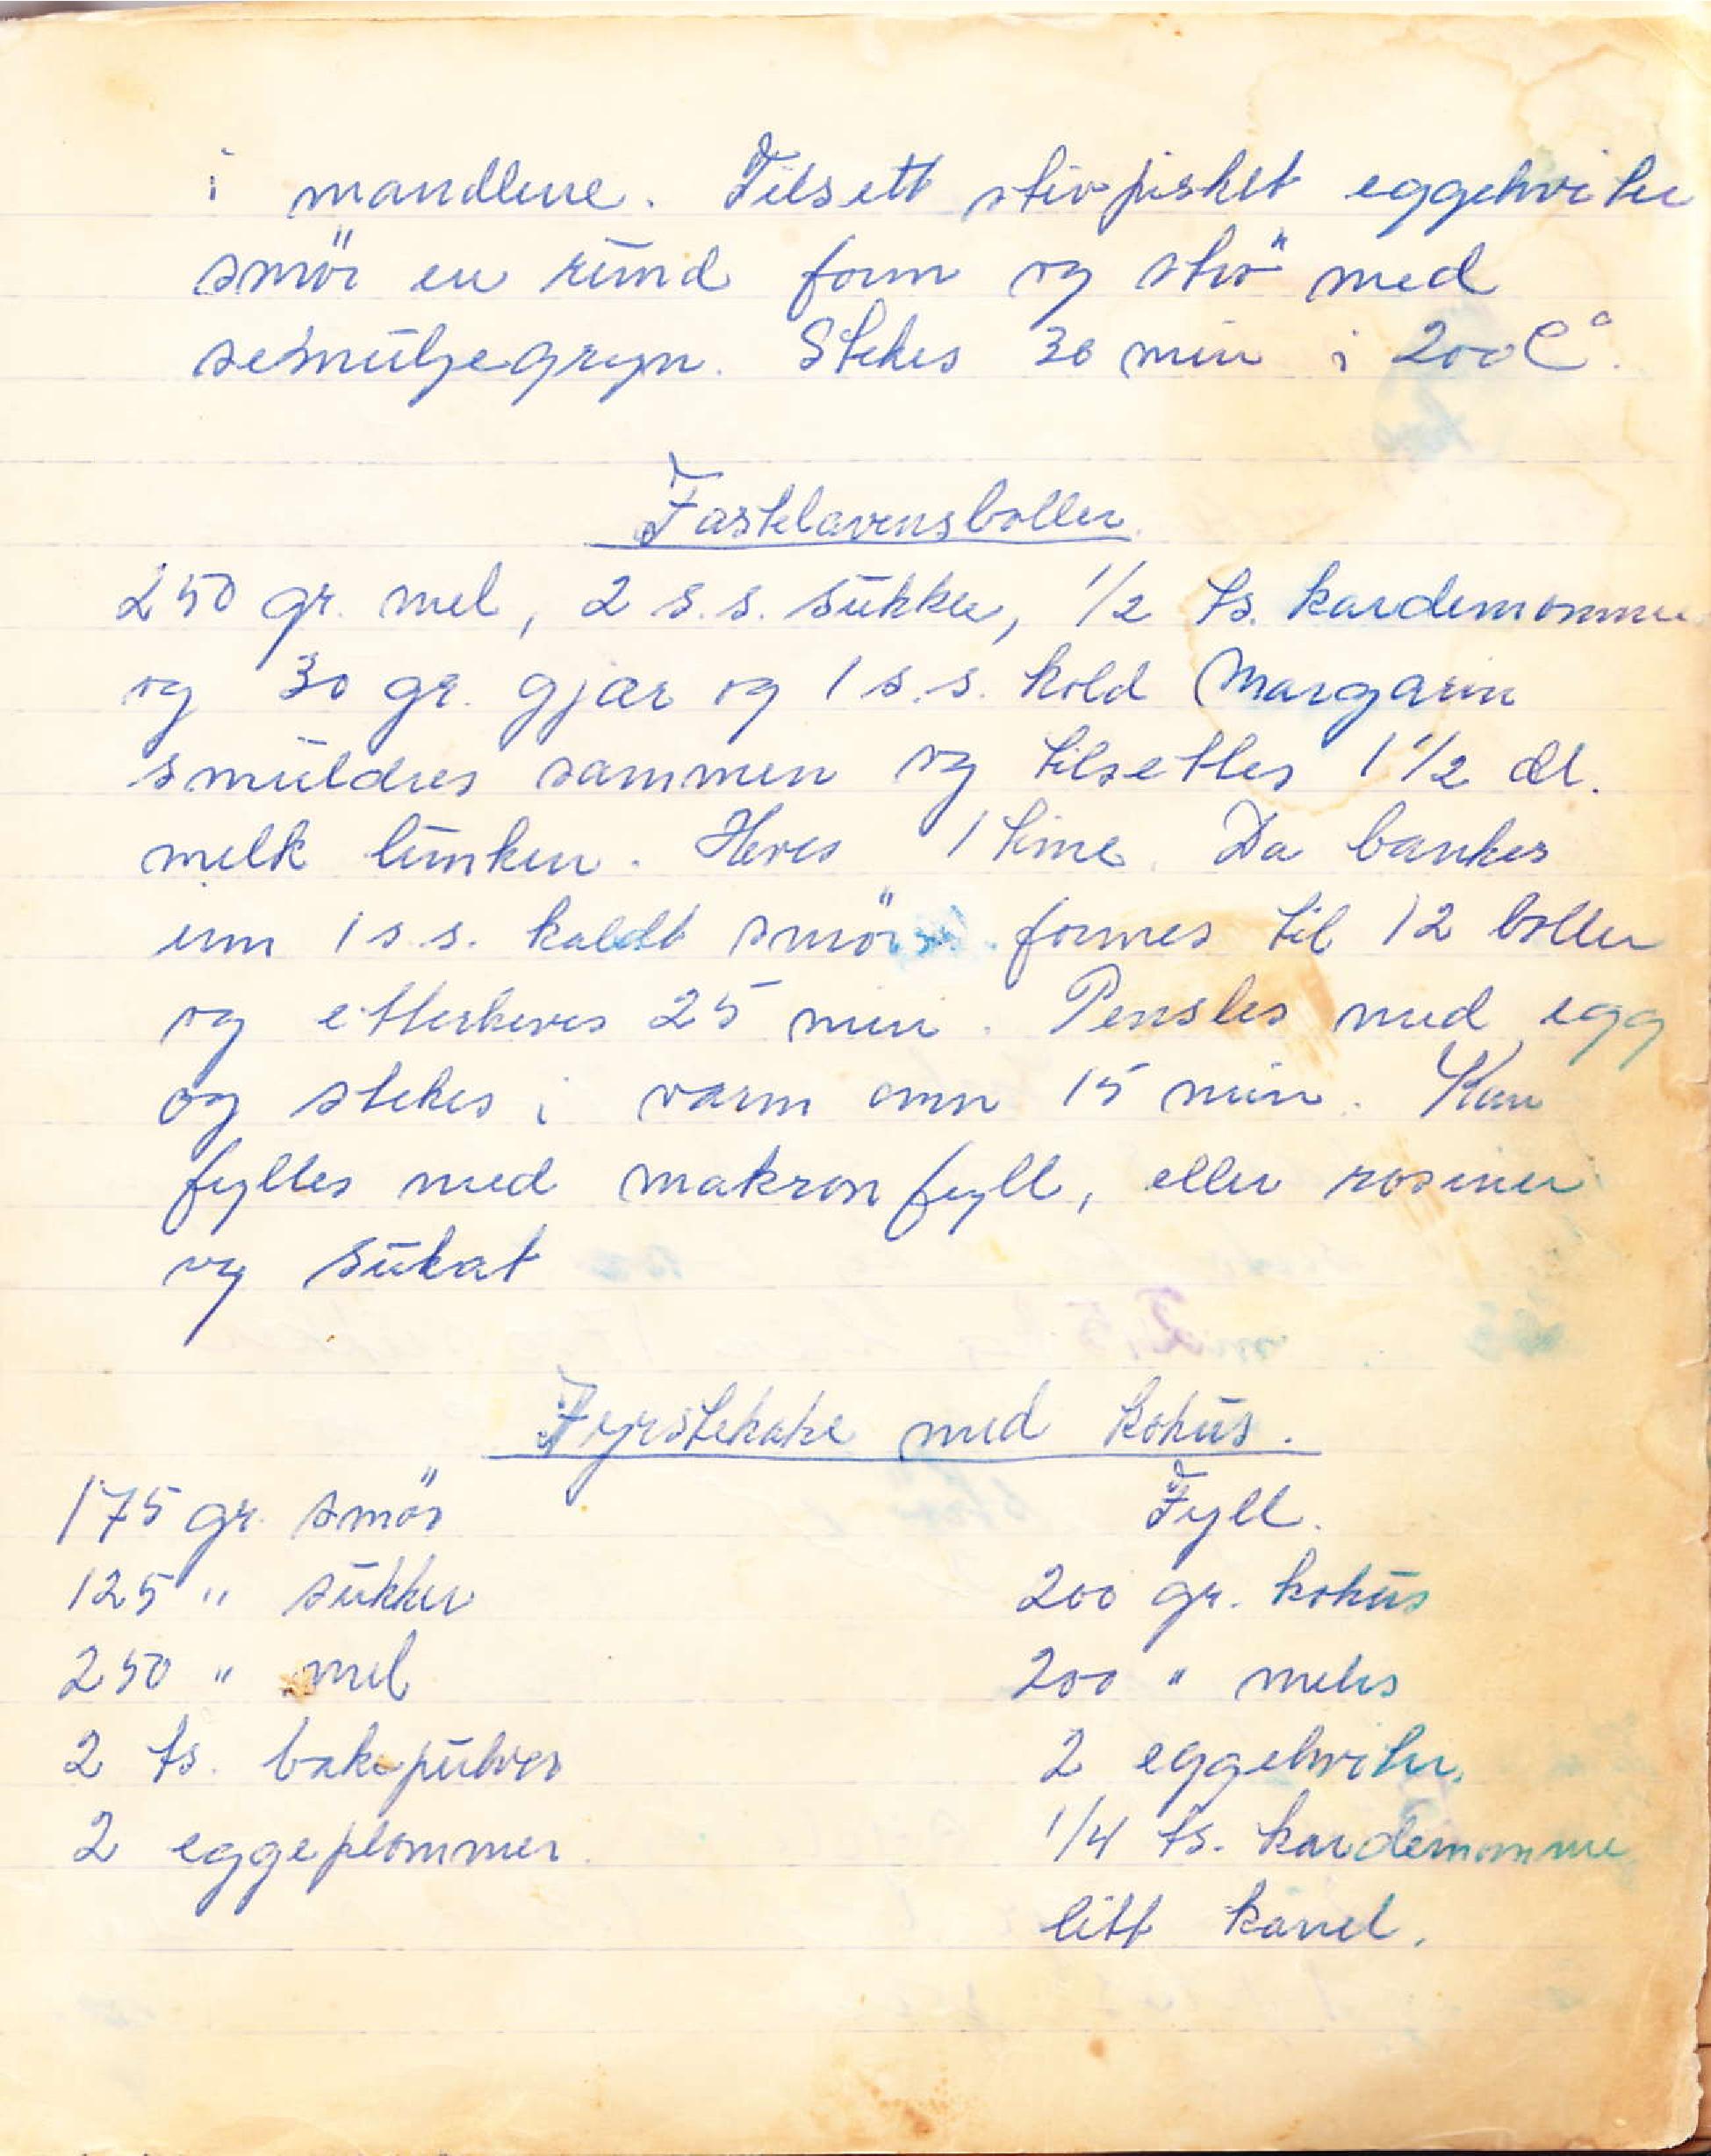 i mandlene. Tilsett stivpisket eggehviter
smör en rund form og strö med
semuljegryn. Stekes 30 min i 200 C°.
Fastelavensboller
250 gr. mel, 2 s.s. sukker, 1/2 ts. kardemomme
og 30 gr. gjær og 1 s.s. kold Margarin
smuldres sammen og tilsettes 1 1/2 dl.
melk lunken. Heves 1 time. Da bankes
inn 1 s.s. kaldt smör formes til 12 boller
og etterheves 25 min. Pensles med egg
og stekes i varm omn 15 min. Kan
fylles med makronfyll, eller rosiner
og sukat
Fyrstekake med kokus.
175 gr. smör
125 " sukker
250 " mel
2 ts. bakepulver
2 eggeplommer.
Fyll.
200 gr. kokus
200 " melis
2 eggehviter.
1/4 ts. kardemomme
litt kanel.